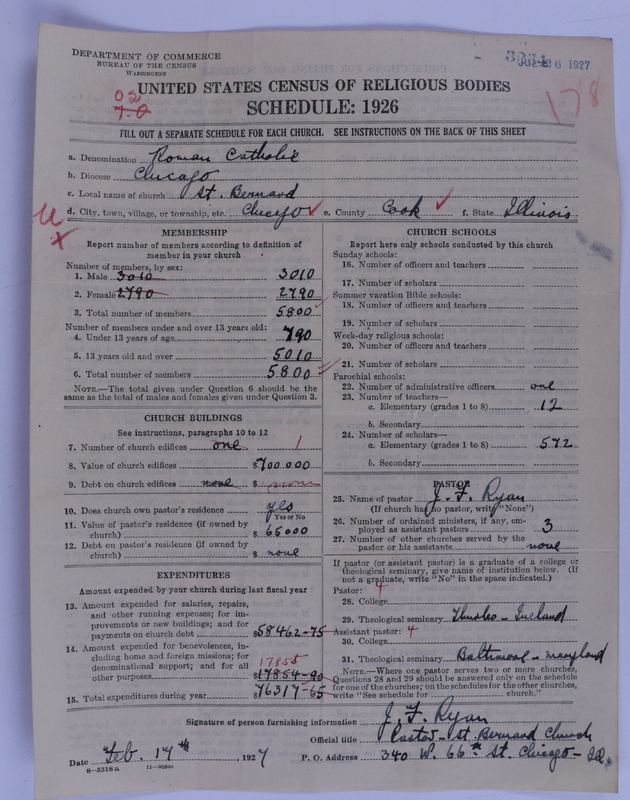 DEPARTMENT OF COMMERCE
BUREAU OF THE CENSUS
WASHINGTON
6 1927
178
UNITED STATES CENSUS OF RELIGIOUS BODIES
SCHEDULE: 1926
02
7-0
FILL OUT A SEPARATE SCHEDULE FOR EACH CHURCH. SEE INSTRUCTIONS ON THE BACK OF THIS SHEET
a. Denomination Roman Catholic
b. Diocese Chicago
c. Local name of church St. Bernard
d. City, town, village, or township, etc. Chicago e. County Cook f. State Illinois
MEMBERSHIP
Report number of members according to definition of
member in your church
Number of members, by sex:
1. Male 3010 3010
2. Female 2790 2790
3. Total number of members 5800
Number of members under and over 13 years old:
4. Under 13 years of age 790
5. 13 years old and over 5010
6. Total number of members 5800
NOTE.—The total given under Question 6 should be the
same as the total of males and females given under Question 3.
CHURCH BUILDINGS
See instructions, paragraphs 10 to 12
7. Number of church edifices one 1
8. Value of church edifices $700000
9. Debt on church edifices none $ none
10. Does church own pastor's residence yes
Yes or No
11. Value of pastor's residence (if owned by
church) $65000
12. Debt on pastor's residence (if owned by
church) $ none
EXPENDITURES
Amount expended by your church during last fiscal year
13. Amount expended for salaries, repairs,
and other running expenses; for im-
provements or new buildings; and for
payments on church debt $58462-75
14. Amount expended for benevolences, in-
cluding home and foreign missions; for
denominational support; and for all
other purposes 17855 $17854-90
15. Total expenditures during year $76317-65
CHURCH SCHOOLS
Report here only schools conducted by this church
Sunday schools:
16. Number of officers and teachers
17. Number of scholars
Summer vacation Bible schools:
18. Number of officers and teachers
19. Number of scholars
Week-day religious schools:
20. Number of officers and teachers
21. Number of scholars
Parochial schools:
22. Number of administrative officers one
23. Number of teachers—
a. Elementary (grades 1 to 8) 12
b. Secondary
24. Number of scholars—
a. Elementary (grades 1 to 8) 572
b. Secondary
PASTOR
25. Name of pastor J. F. Ryan
(If church has no pastor, write "None")
26. Number of ordained ministers, if any, em-
ployed as assistant pastors 3
27. Number of other churches served by the
pastor or his assistants none
If pastor (or assistant pastor) is a graduate of a college or
theological seminary, give name of institution below. (If
not a graduate, write "No" in the space indicated.)
Pastor: 4
28. College
29. Theological seminary Thurles - Ireland
Assistant pastor: 4
30. College
31. Theological seminary Baltimore - Maryland
NOTE.—Where one pastor serves two or more churches,
Questions 28 and 29 should be answered only on the schedule
for one of the churches; on the schedules for the other churches,
write "See schedule for church."
Signature of person furnishing information J. F. Ryan
Official title Pastor - St. Bernard Church
Date Feb. 17th, 1927 P. O. Address 340 W. 66th St. Chicago - Ill.
8-5518a